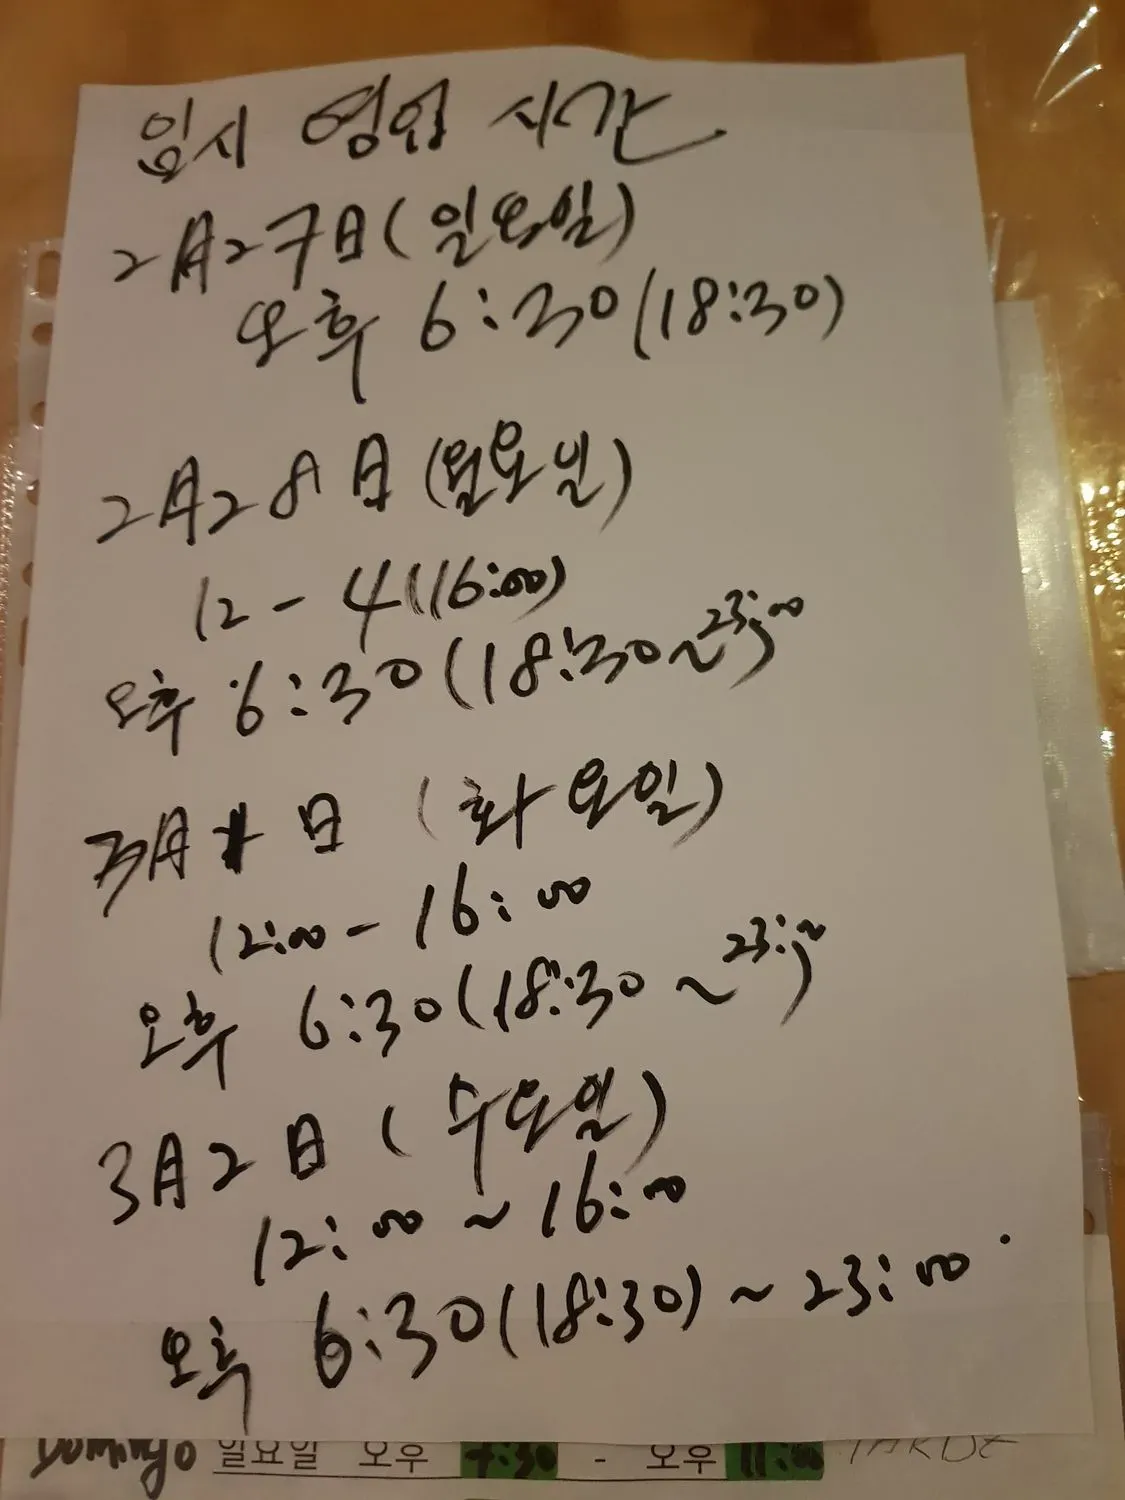 임시 영업 시간
2月27日(일요일)
오후 6:30(18:30)
2月28日(월요일)
12-4(16:00)
오후 6:30(18:30~23:00)
3月1日(화요일)
12:00-16:00
오후 6:30(18:30~23:00)
3月2日(수요일)
12:00~16:00
오후 6:30(18:30)~23:00.
Domingo 일요일 오우 7:30 - 오우 11:00 TARDE